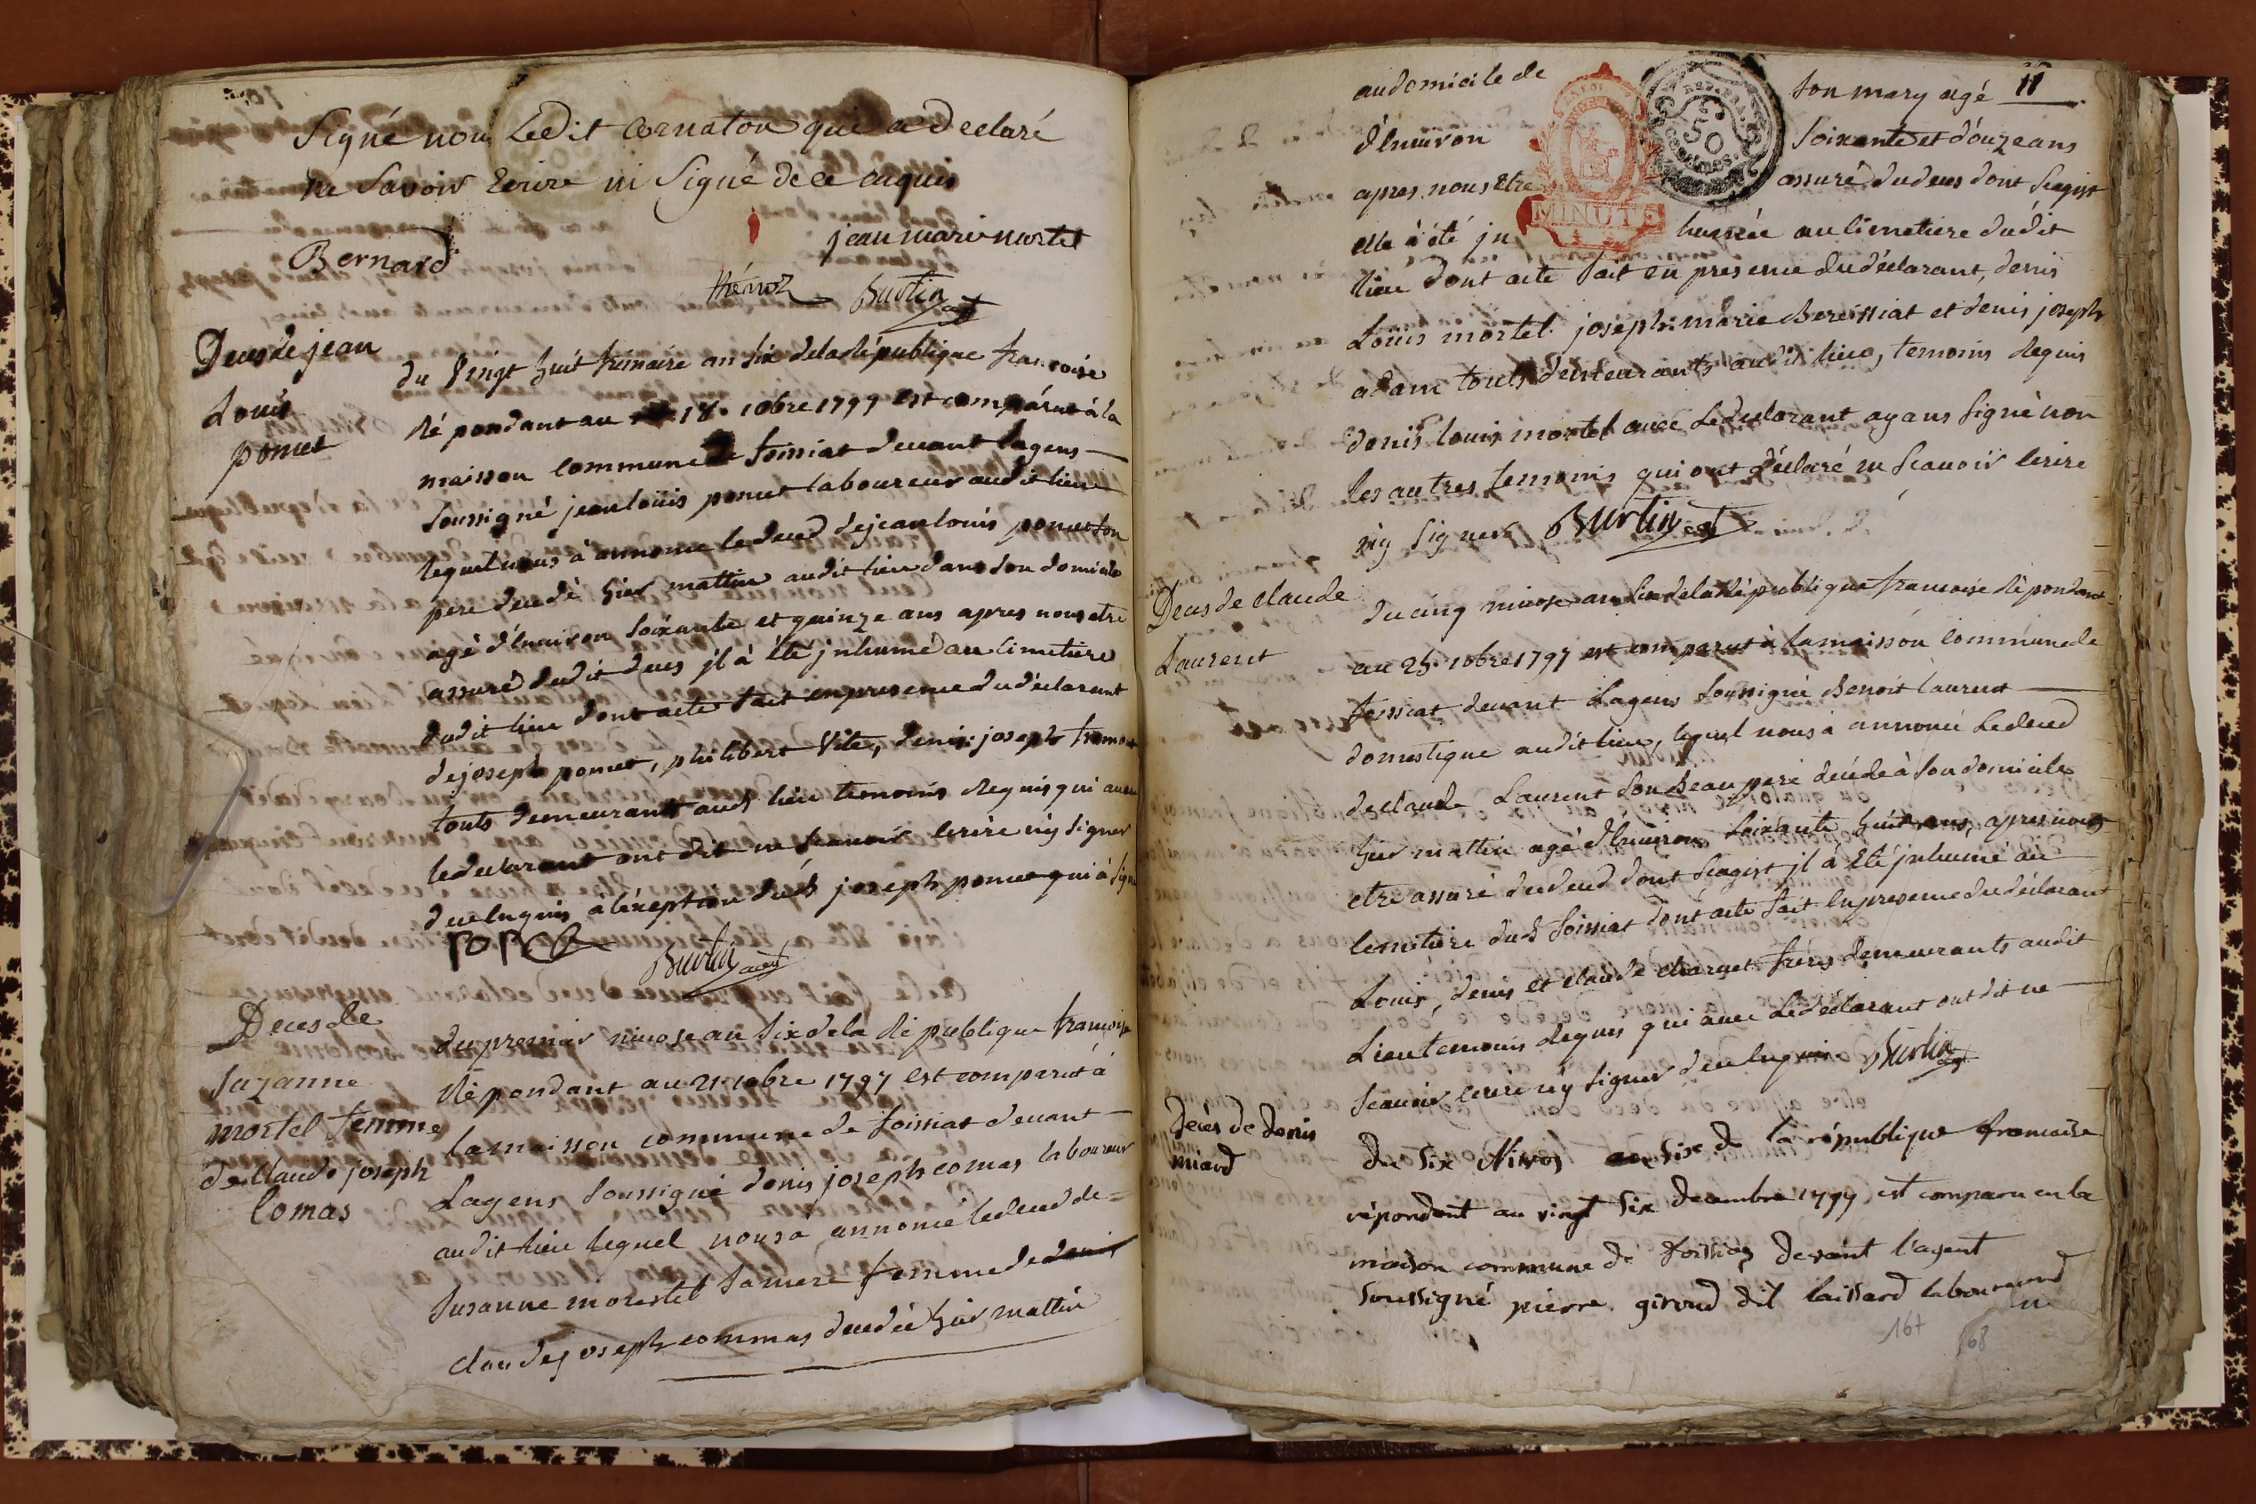 Signé non Ledit Cornaton qui a declaré
ne Savoir Ecrire ni Signé de ce enquis
jean marie mortel
Bernard
thénoz Burtin agt
Deces de jean
Louis
ponut
du Vingt huit frimaire an six dela Republique francoise
Ré pondant au 18. 10bre 1797 est comparut à la
maisson commune de foissiat devant lagens
soussigné jean loüis ponut laboureur audit lieu
lequel nous à annonce le deced de jean louis ponut son
pere decedé hier mattin audit lieu dans son domicile
agé d'Environ soixante et quinze ans apres nous etre
assuré dudit deces jl à Eté jnhumé au cimetiere
dudit lieu dont acte fait en presence du déclarant
de joseph ponut, philibert Vite, denis joseph
touts demeurants aud. lieu temoins Requis qui avec
le declarant ont dit ne scavoir Ecrire ny signer
de ce Enquis à l'exeption dud. joseph ponut qui à signé
Burtin agent
Deces de
suzanne
mortel femme
de claude joseph
Comas
du premier nivose an six de la Ré publique francoise
Ré pondant au 21. 10bre 1797 est comparut à
la maisson commune de foissiat devant
Lagens soussigné denis joseph comas laboureur
audit lieu lequel nous à annoncé le deced de
susanne morestel sa mere femme de denis
claude joseph commas decedée hier mattin
11
au domicile de son mary agé
d'Environ soixante et douze ans
apres nous etre assuré du deces dont scagist
elle à eté jn humée au cimetiere dudit
REP. FRA. 50 CENTIMES.
MINUTE
lieu dont acte fait en presence du déclarant, denis
Louis mortel joseph marie Bereissiat et denis joseph
adam touts demeurants audit lieu, temoins Requis
denis louis mortel avec Le declarant ayans signé non
les autres temoins qui ont déclaré ne scavoir Ecrire
ny signer Burtin agt
Deces de claude
Laurent
du cinq nivose an six dela Ré publique francoise Ré pondant
au 25. 10bre 1797 est comparut à la maisson commune de
foissiat devant Lagens soussigné Benoit Laurent
domestique audit lieu, lequel nous à annoncé Le deced
de claude Laurent son Beau pere décéde à son domicile
hier mattin agé d'Environ soixante huit ans, apres nous
etre assuré du deced dont scagist jl à Eté jnhumé au
Cemetiere dud. foissiat dont acte fait En presence du déclarant
Louis, denis et claude charnet freres demeurants audit
Lieu temoins Requis qui avec Le déclarant ont dit ne
scavoir Ecrire ny signer de ce Enquis Burtin agt
Décès de denis
miard
du six Nivos an six de la république francaise
répondant au vingt six decembre 1797 est comparu en la
maison commune de foissiat devant l'agent
soussigné pierre giroud dit laissard laboureur
167
168